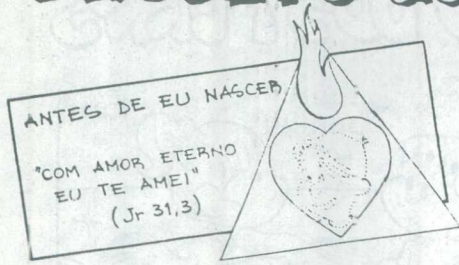 ANTES DE EU NASCER
"COM AMOR ETERNO
EU TE AMEI"
(Jr 31,3)